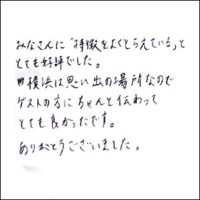 みなさんに"特徴をよくとらえている"と
とても好評でした。
横浜は思い出の場所なので
ゲストの方にちゃんと伝わって
とても良かったです。
ありがとうございました。